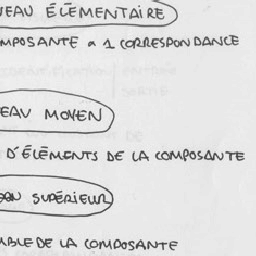 VEAU ÉLÉMENTAIRE
MPOSANTE a 1 CORRESPONDANCE
EAU MOYEN
D'ÉLÉMENTS DE LA COMPOSANTE
SUPÉRIEUR
MBLE DE LA COMPOSANTE